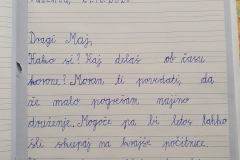 Dragi Maj,
Kako si? Kaj delaš ob času
korone? Moram ti povedati, da
že malo pogrešam najino
druženje. Mogoče pa bi letos lahko
šli skupaj na krajše počitnice.